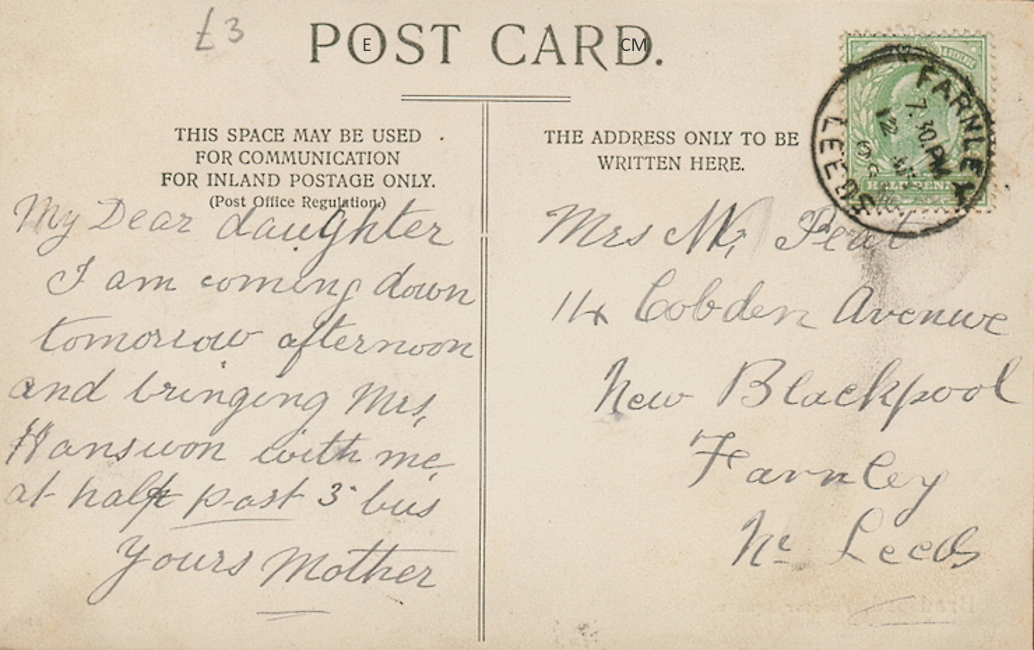 £3
POST CARD.
E
CM
THIS SPACE MAY BE USED
FOR COMMUNICATION
FOR INLAND POSTAGE ONLY.
(Post Office Regulation.)
My Dear daughter
I am coming down
tomorrow afternoon
and bringing Mrs,
Hanswon with me
at half past 3 bus
Yours Mother
THE ADDRESS ONLY TO BE
WRITTEN HERE.
FARNLEY
7.30 PM
12
LEEDS
HALF PENNY
Mrs
14 Cobden Avenue
New Blackpool
Farnley
Nr Leeds